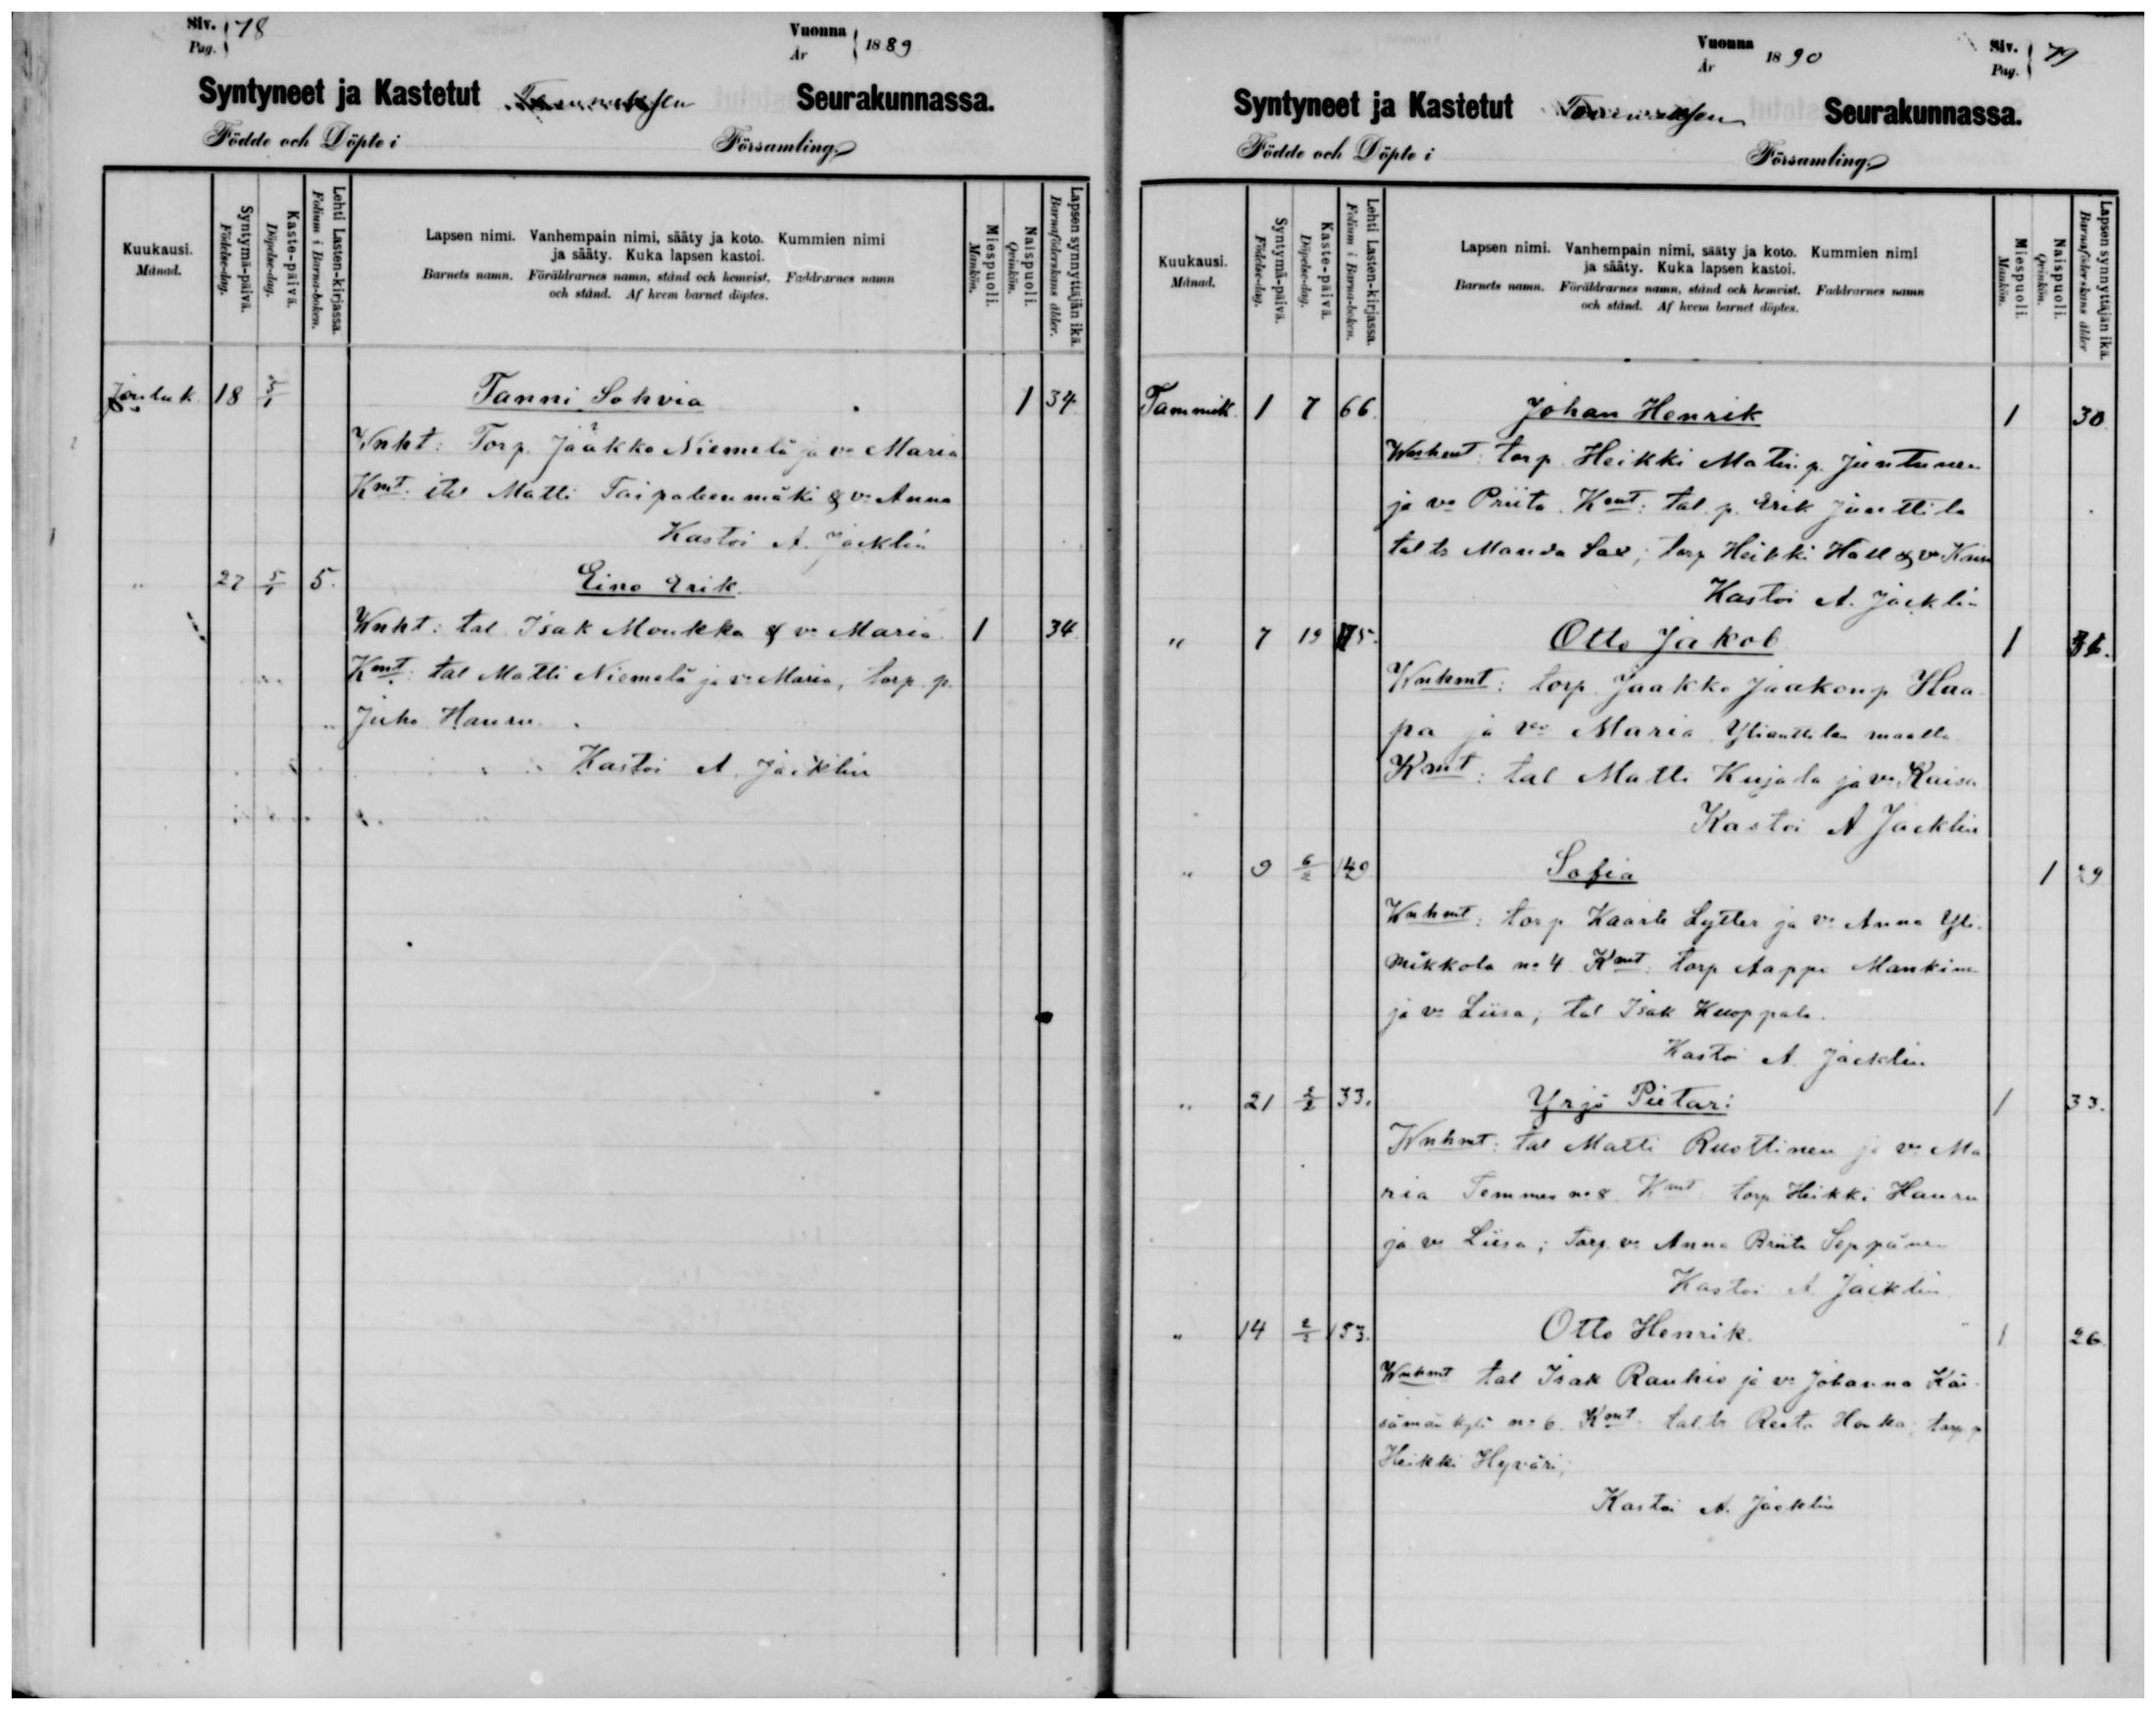 Siv. 78
Pag.
Vuonna 1889
År
Syntyneet ja Kastetut Temmeksen Seurakunnassa.
Födde och Döpte i Församling.
Kuukausi.
Månad.
Syntymä-päivä.
Födelse-dag.
Kaste-päivä.
Döpelse-dag.
Lehti Lasten-kirjassa.
Folium i Barna-boken.
Lapsen nimi. Vanhempain nimi, sääty ja koto. Kummien nimi
ja sääty. Kuka lapsen kastoi.
Barnets namn. Föräldrarnes namn, stånd och hemvist. Faddrarnes namn
och stånd. Af hvem barnet döptes.
Miespuoli.
Mankön.
Naispuoli.
Qvinkön.
Lapsen synnyttäjän ikä.
Barnaföderskans ålder.
Jouluk. 18 Fanni Sohvia 1 34
Wnht: Torp. Jaakko Niemelä ja vo Maria
Kmt. itsl Matti Taipaleenmäki & vo Anna
Kastoi A. Jacklin
" 27 5/1 5. Eino Erik.
Wnht: tal Isak Moukka & vo Maria 1 34
Kmt: tal Matti Niemelä ja vo Maria, torp. p.
Juho Hauru.
Kastoi A. Jacklin
Vuonna 1890
År
Siv. 79
Pag.
Syntyneet ja Kastetut Temmeksen Seurakunnassa.
Födde och Döpte i Församling.
Kuukausi.
Månad.
Syntymä-päivä.
Födelse-dag.
Kaste-päivä.
Döpelse-dag.
Lehti Lasten-kirjassa.
Folium i Barna-boken.
Lapsen nimi. Vanhempain nimi, sääty ja koto. Kummien nimi
ja sääty. Kuka lapsen kastoi.
Barnets namn. Föräldrarnes namn, stånd och hemvist. Faddrarnes namn
och stånd. Af hvem barnet döptes.
Miespuoli.
Mankön.
Naispuoli.
Qvinkön.
Lapsen synnyttäjän ikä.
Barnaföderskans ålder
Tammik. 1 7 66. Johan Henrik 1 30
Wnhmt: torp. Heikki Matinp. Juntunen
ja vo Priita. Kmt: tal. p. Erik Junttila
tal tr Manda Sax; torp Heikki Hall & vo Kaisa
Kastoi A. Jacklin
" 7 19 Otto Jakob 1
Wnhmt: torp. Jaakko Jaakonp Haa
pa ja vo Maria Ylianttilan maalla
Kmt: tal Matti Kujala ja vo Kaisa
Kastoi A Jacklin
" 9 6/2 Sofia 1 29
Wnhmt: torp Kaarle Lytter ja vo Anna Yli
mikkola no 4 Kmt: torp Aappo Mankinen
ja vo Liisa; tal Isak Kuoppala.
Kastoi A. Jacklin
" 21 2/2 33. Yrjö Pietari 1 33.
Wnhmt: tal Matti Ruottinen ja vo Ma
ria Temmes no 8 Kmt torp Heikki Hauru
ja vo Liisa; Torp. vo Anna Briita Seppänen
Kastoi A Jacklin
" 14 2/2 153. Otto Henrik. 1 26.
Wnhmt tal Isak Rauhio ja vo Johanna Kär
sämän kylä no 6. Kmt: tal. tr Reeta Honka; torp. p
Heikki Hyväri,
Kastoi A. Jacklin